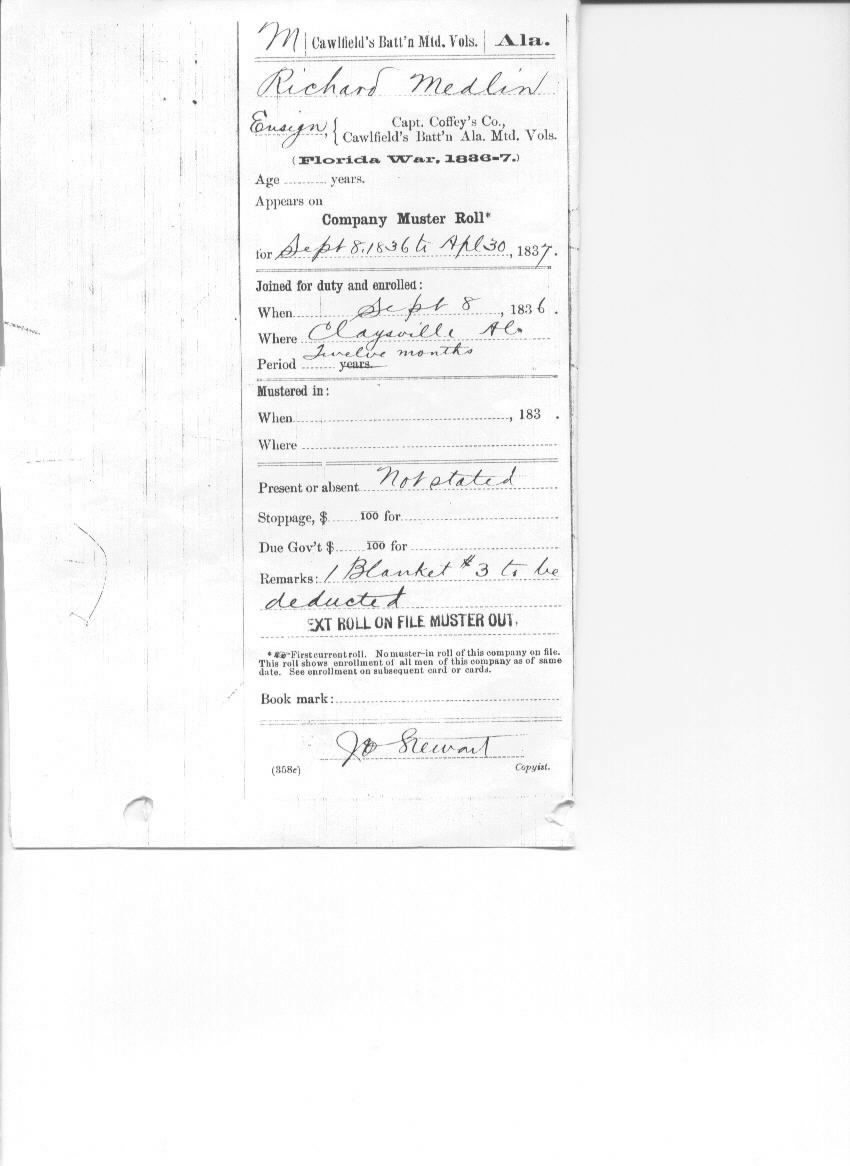 M | Cawlfield's Batt'n Mtd. Vols. | Ala.
Richard Medlin
Ensign, { Capt. Coffey's Co.,
Cawlfield's Batt'n Ala. Mtd. Vols.
(Florida War, 1836-7.)
Age ............ years.
Appears on
Company Muster Roll*
for Sept 8, 1836 to Apl 30, 1837.
Joined for duty and enrolled:
When Sept 8, 1836.
Where Claysville Al.
Twelve months
Period ........ years.
Mustered in:
When ............, 183 .
Where ............
Present or absent Not stated
Stoppage, $ ........ 100 for ............
Due Gov't $ ........ 100 for ............
Remarks: 1 Blanket $3 to be
deducted
EXT ROLL ON FILE MUSTER OUT.
* First current roll. No muster-in roll of this company on file.
This roll shows enrollment of all men of this company as of same
date. See enrollment on subsequent card or cards.
Book mark: ............
Stewart
(358c) Copyist.